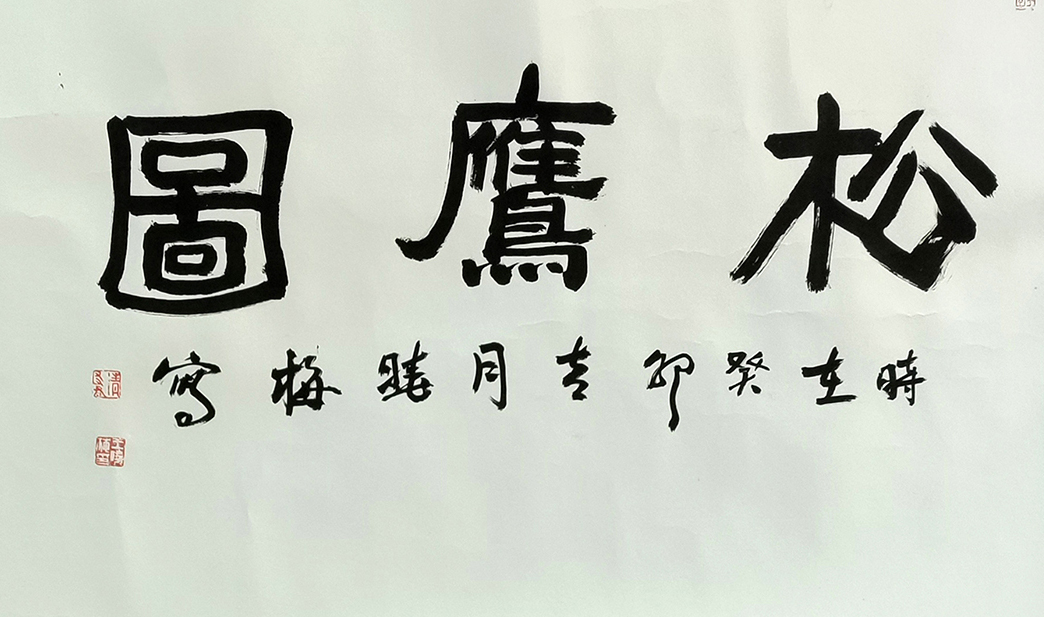 松鷹圖
時在癸卯吉月曉梅寫